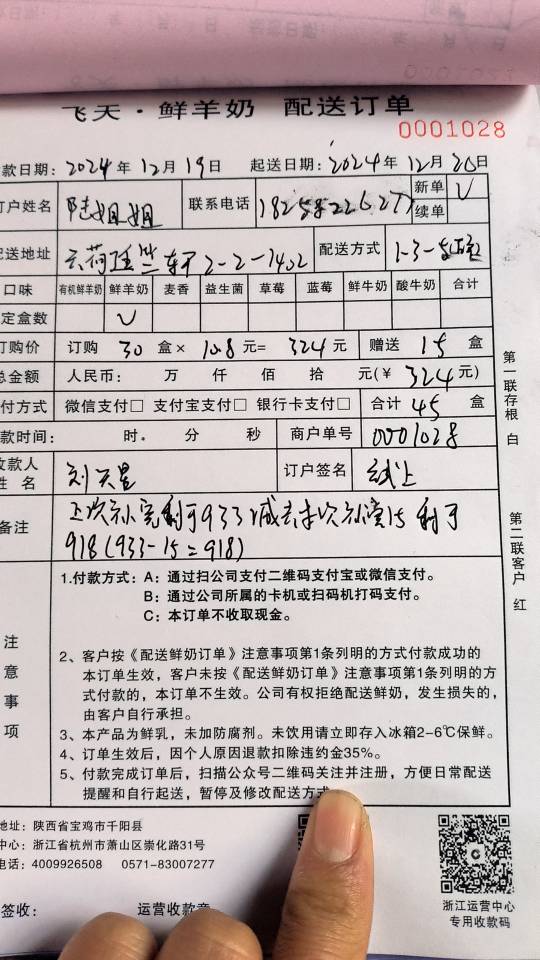 飞天·鲜羊奶 配送订单
0001028
款日期: 2024年12月19日 起送日期: 2024年12月20日
订户姓名 陆姐姐 联系电话 新单 V
续单
配送地址 2-2-1402 配送方式 1-3-
口味 有机鲜羊奶 鲜羊奶 麦香 益生菌 草莓 蓝莓 鲜牛奶 酸牛奶 合计
定盒数 V
订购价 订购 30 盒× 10.8 元= 324 元 赠送 15 盒
总金额 人民币: 万 仟 佰 拾 元(¥ 324 元)
付方式 微信支付□ 支付宝支付□ 银行卡支付□ 合计 45 盒
款时间: 时. 分 秒 商户单号 0001028
收款人姓名 刘天星 订户签名 线上
备注 上次补完剩可933减去本次补赠15剩可
918(933-15=918)
注意事项
1.付款方式: A: 通过扫公司支付二维码支付宝或微信支付。
B: 通过公司所属的卡机或扫码机打码支付。
C: 本订单不收取现金。
2、客户按《配送鲜奶订单》注意事项第1条列明的方式付款成功的
本订单生效, 客户未按《配送鲜奶订单》注意事项第1条列明的方
式付款的, 本订单不生效。公司有权拒绝配送鲜奶, 发生损失的,
由客户自行承担。
3、本产品为鲜乳, 未加防腐剂。未饮用请立即存入冰箱2-6℃保鲜。
4、订单生效后, 因个人原因退款扣除违约金35%。
5、付款完成订单后, 扫描公众号二维码关注并注册, 方便日常配送
提醒和自行起送, 暂停及修改配送方式
第一联存根 白
第二联客户 红
地址: 陕西省宝鸡市千阳县
中心: 浙江省杭州市萧山区崇化路31号
电话: 4009926508 0571-83007277
签收: 运营收款章
浙江运营中心
专用收款码